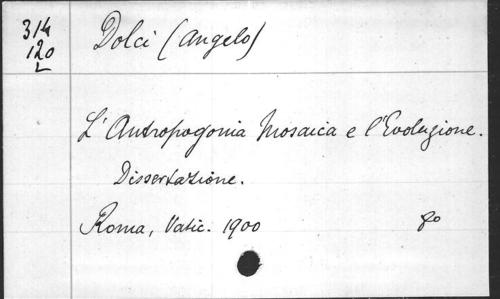 314
120
L
Dolci (Angelo)
L'Antropogonia Mosaica e l'Evoluzione.
Dissertazione.
Roma, Vatic. 1900 8o